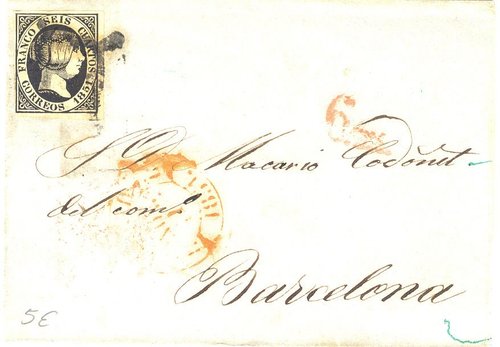 FRANCO SEIS CUARTOS
CORREOS 1851
6
S. D. Macario Codoñet
del com.º
Barcelona
5€